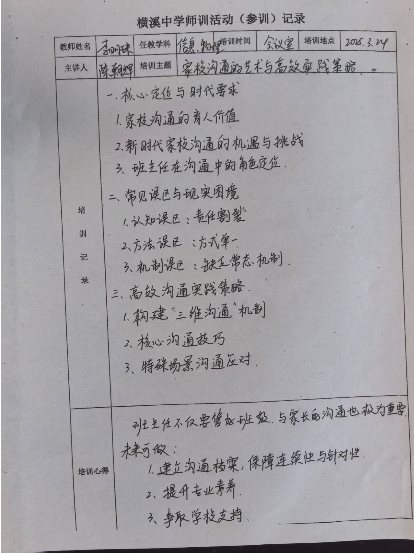 横溪中学师训活动（参训）记录
教师姓名 任教学科 信息 培训时间 会议室 培训地点 2025.3.24
主讲人 陈 培训主题 家校沟通的艺术与高效实践策略。
一.核心定位与时代要求
1.家校沟通的育人价值
2.新时代家校沟通的机遇与挑战
3.班主任在沟通中的角色定位.
二.常见误区与现实困境
1.认知误区："责任割裂"
2.方法误区：方式单一
3.机制误区：缺乏常态机制.
三.高效沟通实践策略.
1.构建"三维沟通"机制
2.核心沟通技巧
3.特殊场景沟通应对.
培训记录
班主任不仅要管好班级.与家长的沟通也极为重要
未来可做：
培训心得
1.建立沟通档案,保障连续性与针对性.
2.提升专业素养.
3、争取学校支持.